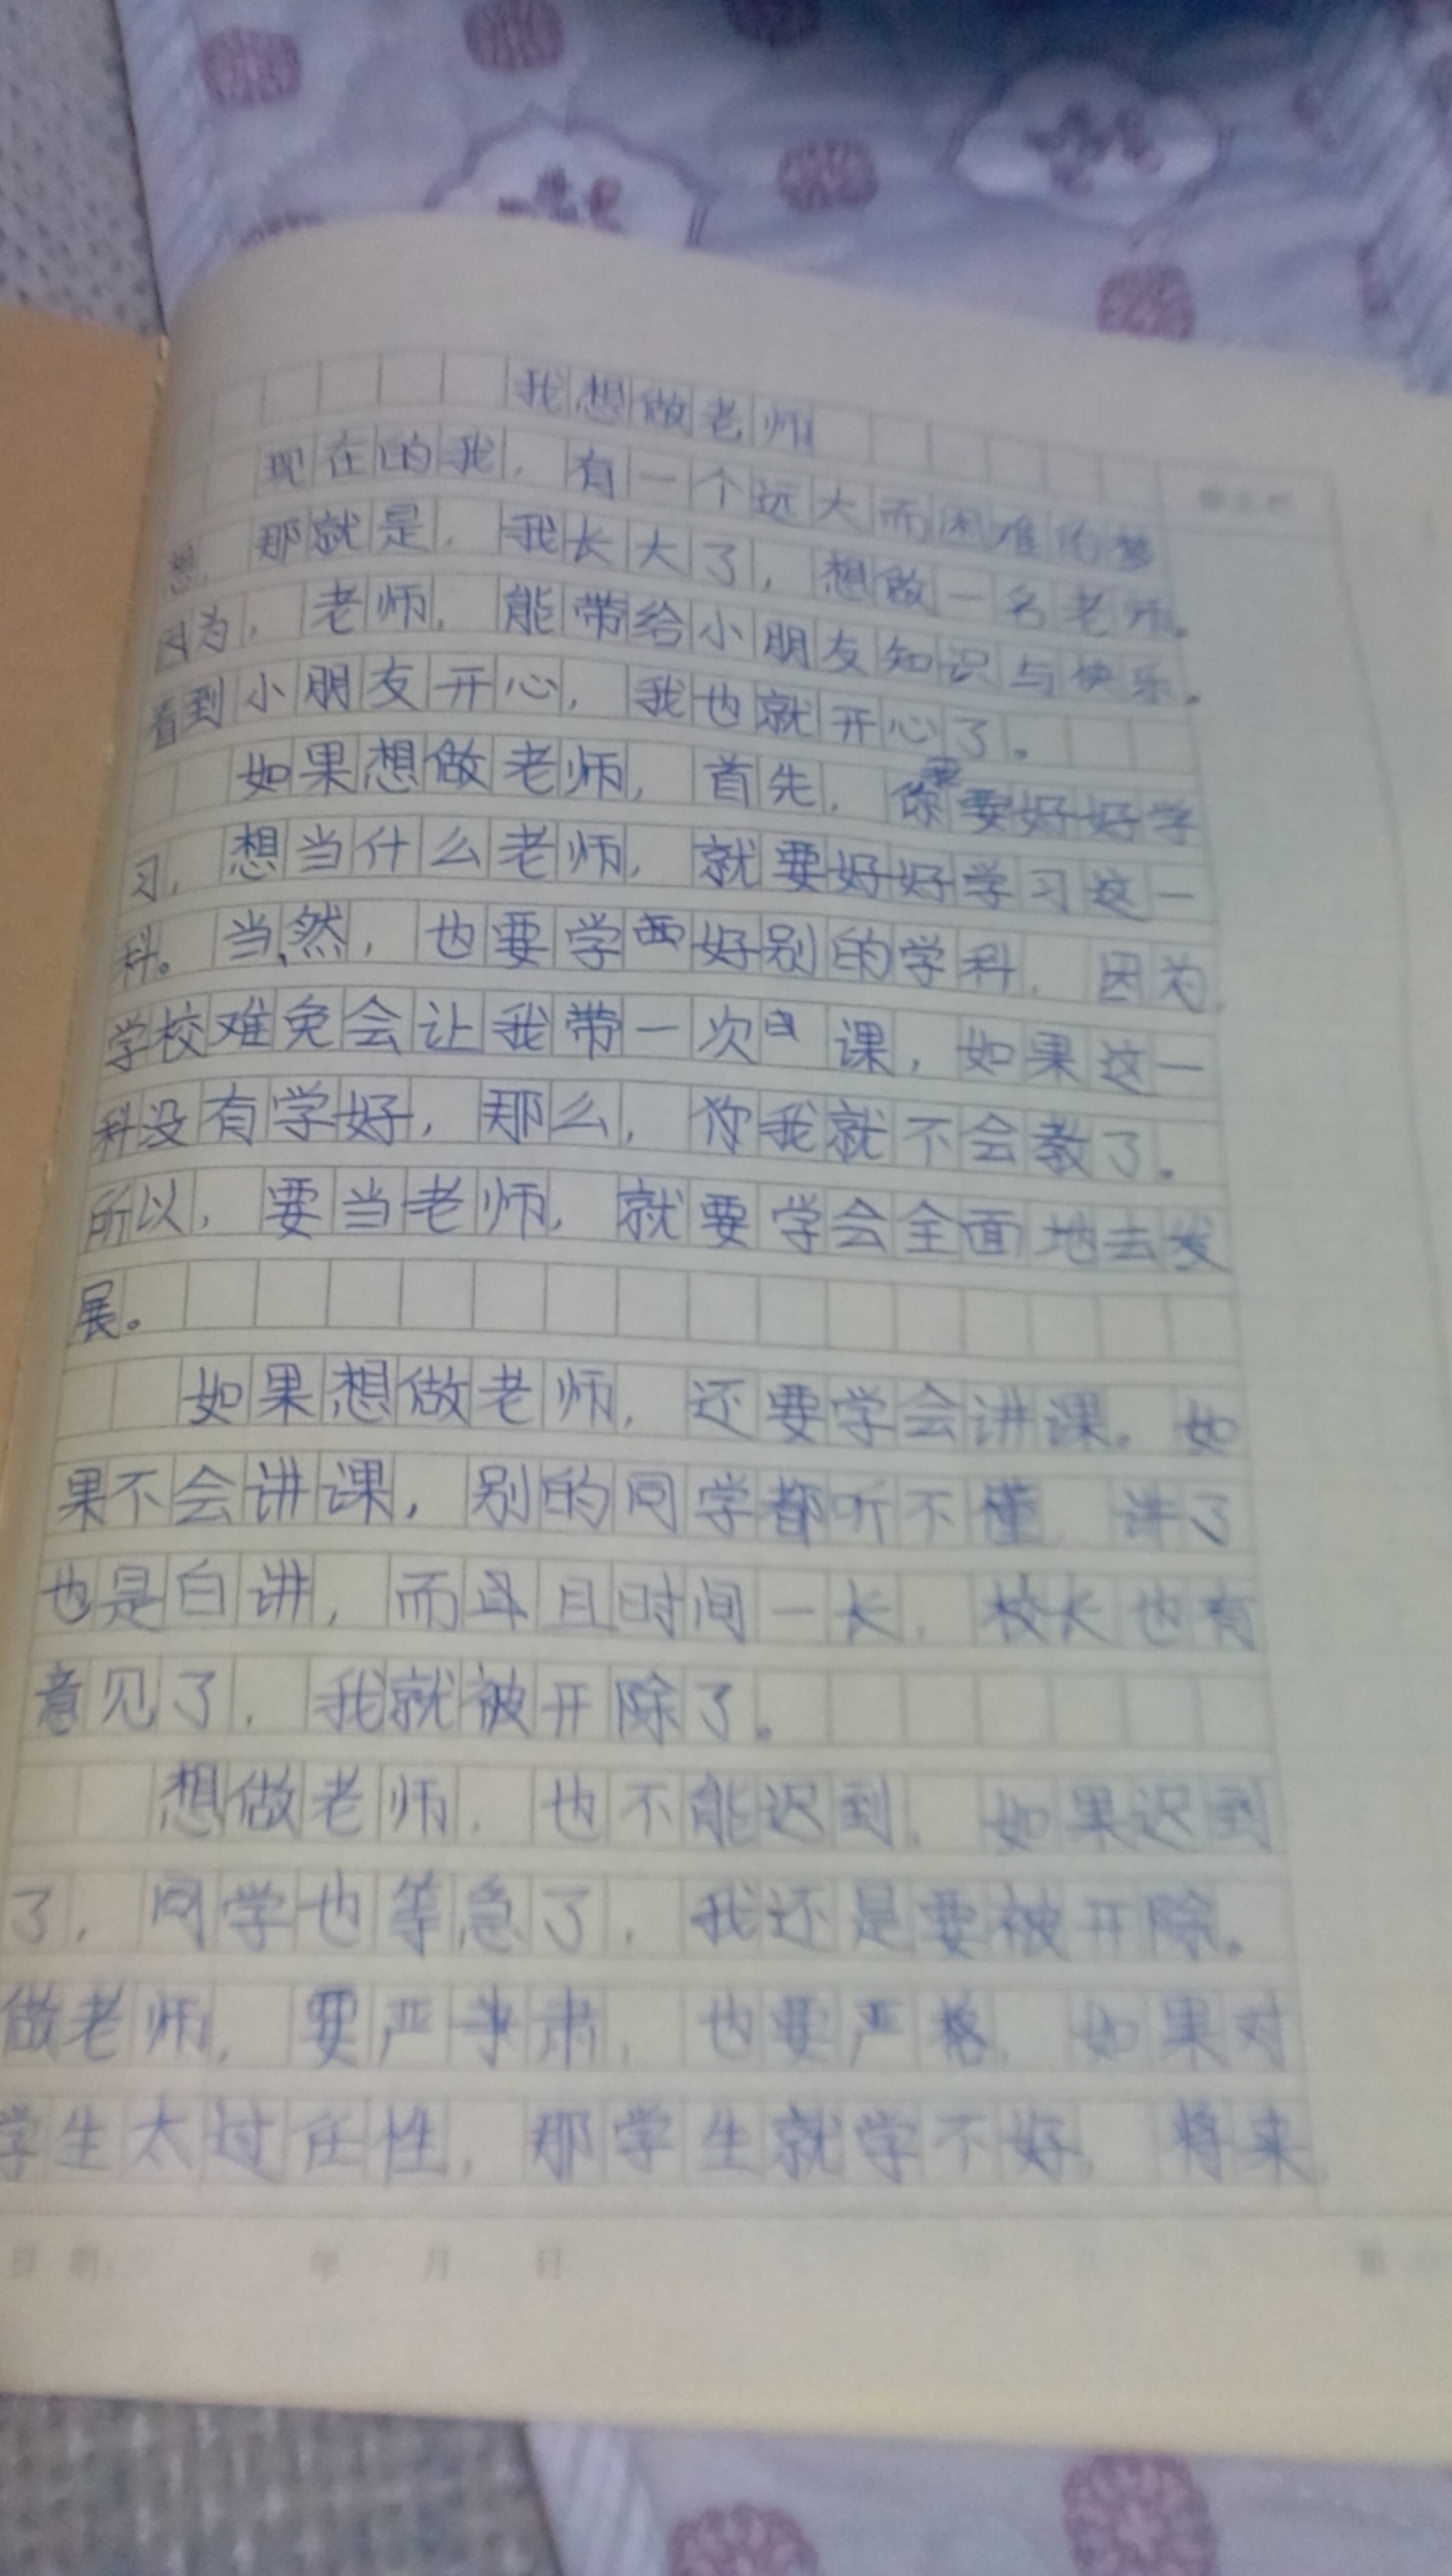 我想做老师
现在的我，有一个远大而困难的梦
想，那就是，我长大了，想做一名老师。
因为，老师，能带给小朋友知识与快乐。
看到小朋友开心，我也就开心了。
如果想做老师，首先，你要好好学
习，想当什么老师，就要好好学习这一
科。当然，也要学好别的学科，因为，
学校难免会让我带一次课，如果这一
科没有学好，那么，你我就不会教了。
所以，要当老师，就要学会全面地去发
展。
如果想做老师，还要学会讲课。如
果不会讲课，别的同学都听不懂，讲了
也是白讲，而且时间一长，校长也有
意见了，我就被开除了。
想做老师，也不能迟到，如果迟到
了，同学也等急了，我还是要被开除。
做老师，要严肃，也要严格，如果对
学生太过任性，那学生就学不好，将来
日期： 年 月 日 第